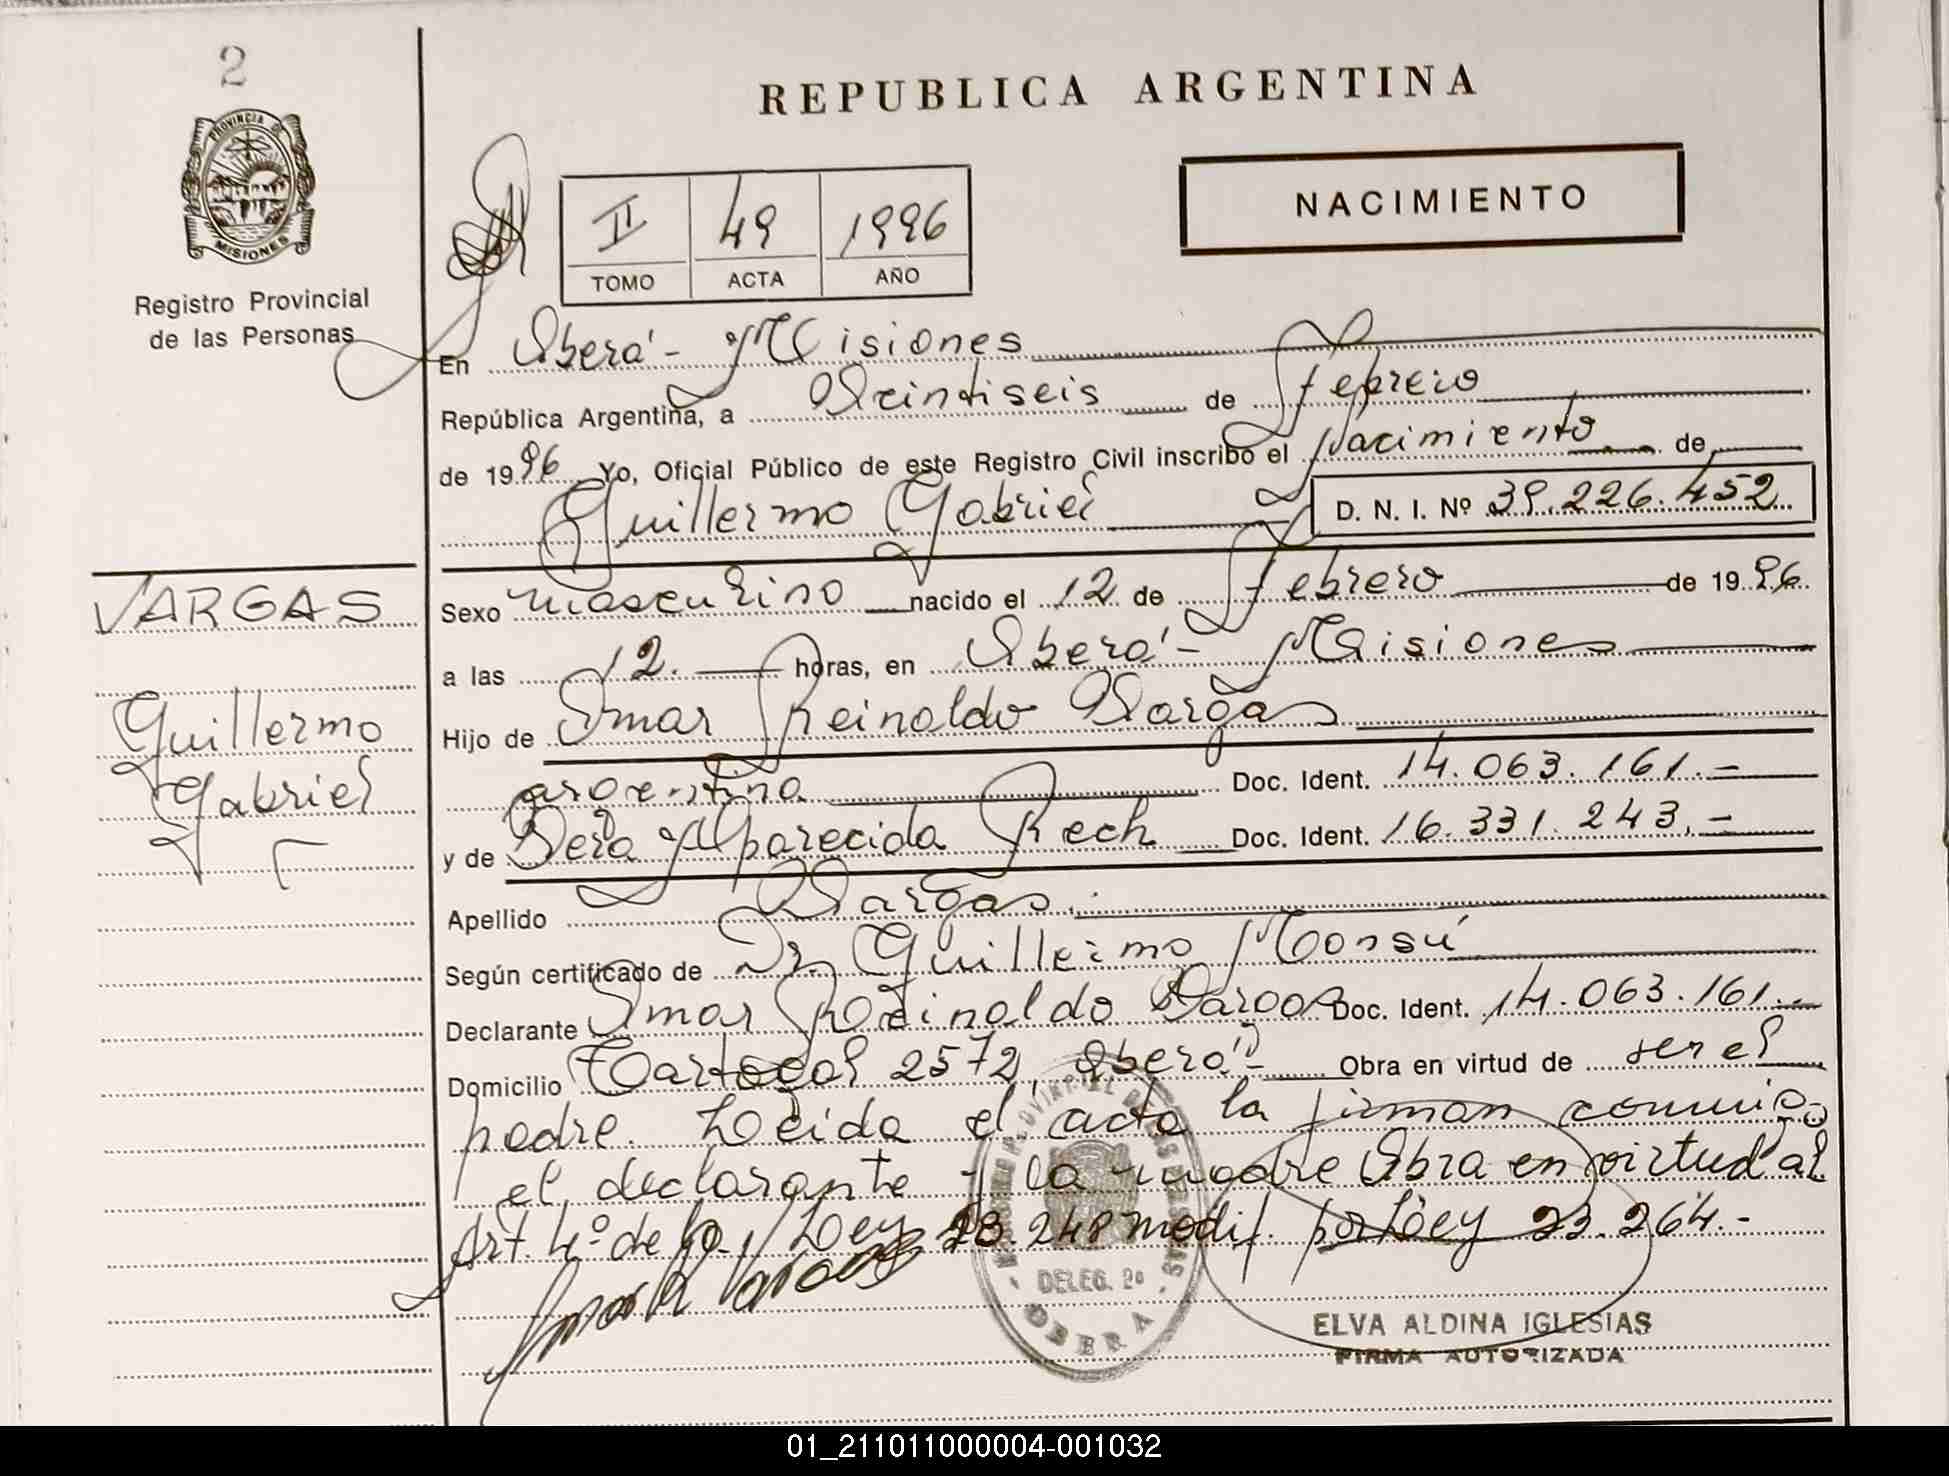 2
PROVINCIA DE
MISIONES
Registro Provincial
de las Personas
REPUBLICA ARGENTINA
NACIMIENTO
II 49 1996
TOMO ACTA AÑO
En Oberá - Misiones
República Argentina, a Veintiseis de Febrero
de 1996 Yo, Oficial Público de este Registro Civil inscribo el Nacimiento de
Guillermo Gabriel D. N. I. Nº 39.226.452
VARGAS
Guillermo
Gabriel
Sexo masculino nacido el 12 de Febrero de 1996
a las 12. horas, en Oberá - Misiones
Hijo de Omar Reinaldo Vargas
argentino Doc. Ident. 14.063.161.-
y de Vera Aparecida Rech Doc. Ident. 16.331.243.-
Apellido Vargas.
Según certificado de Dr. Guillermo Monsú
Declarante Omar Reinaldo Vargas Doc. Ident. 14.063.161.-
Domicilio Tartagal 2572, Oberá - Obra en virtud de ser el
padre. Leida el acta la firman conmigo
el declarante y la madre Obra en virtud al
Art. 4º de la Ley 23.248 modif. por Ley 23.264.-
DELEG. 2º
OBERA
ELVA ALDINA IGLESIAS
FIRMA AUTORIZADA
01_211011000004-001032